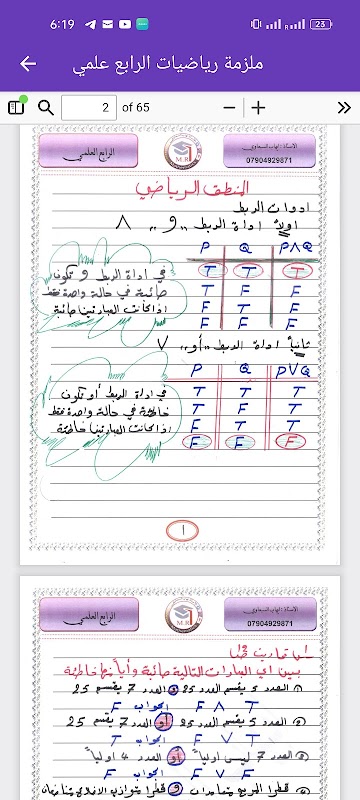 6:19
23
ملزمة رياضيات الرابع علمي
2 of 65
الرابع العلمي
M.R
الاستاذ : ايهاب السعداوي
07904929871
المنطق الرياضي
ادوات الربط
اولاً اداة الربط "و" ∧
P Q P∧Q
T T T
T F F
F T F
F F F
في اداة الربط و تكون
صائبة في حالة واحدة فقط
اذا كانت العبارتين صائبة
ثانياً اداة الربط "أو" ∨
P Q P∨Q
T T T
T F T
F T T
F F F
في اداة الربط أو تكون
خاطئة في حالة واحدة فقط
اذا كانت العبارتين خاطئة
١
الرابع العلمي
M.R
الاستاذ : ايهاب السعداوي
07904929871
بين اي العبارات التالية صائبة وأيا منها خاطئة
① العدد 5 يقسم العدد 25 و العدد 7 يقسم 25
T ∧ F الجواب F
② العدد 5 يقسم العدد 25 أو العدد 7 يقسم 25
T ∨ F الجواب T
③ العدد 7 ليس اولياً أو العدد 4 اولياً
F ∨ F الجواب F
قطرا المربع متعامدان و قطرا متوازي الاضلاع